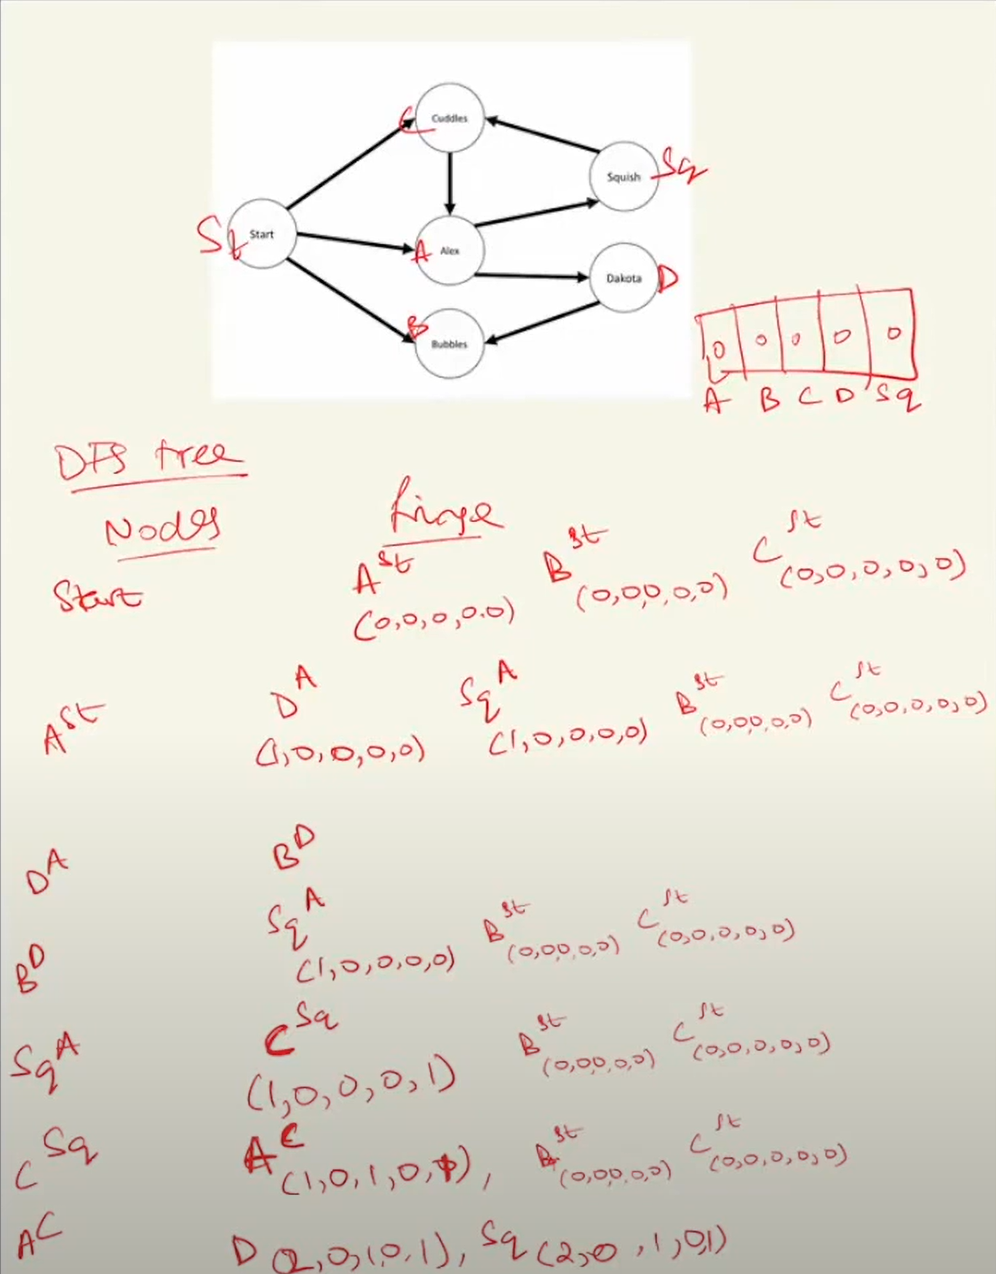 Cuddles
C
Squish Sq
St Start
A Alex
Dakota D
B
Bubbles
0 0 0 0 0
A B C D Sq
DFS tree
Nodes fringe
Start A^St (0,0,0,0.0) B^St (0,0,0,0,0) C^St (0,0,0,0,0)
A^St D^A (1,0,0,0,0) Sq^A (1,0,0,0,0) B^St (0,0,0,0,0) C^St (0,0,0,0,0)
D^A B^D
B^D Sq^A (1,0,0,0,0) B^St (0,0,0,0,0) C^St (0,0,0,0,0)
Sq^A C^Sq (1,0,0,0,1) B^St (0,0,0,0,0) C^St (0,0,0,0,0)
C^Sq A^C (1,0,1,0,1), B^St (0,0,0,0,0) C^St (0,0,0,0,0)
A^C D (2,0,1,0,1), Sq (2,0,1,0,1)